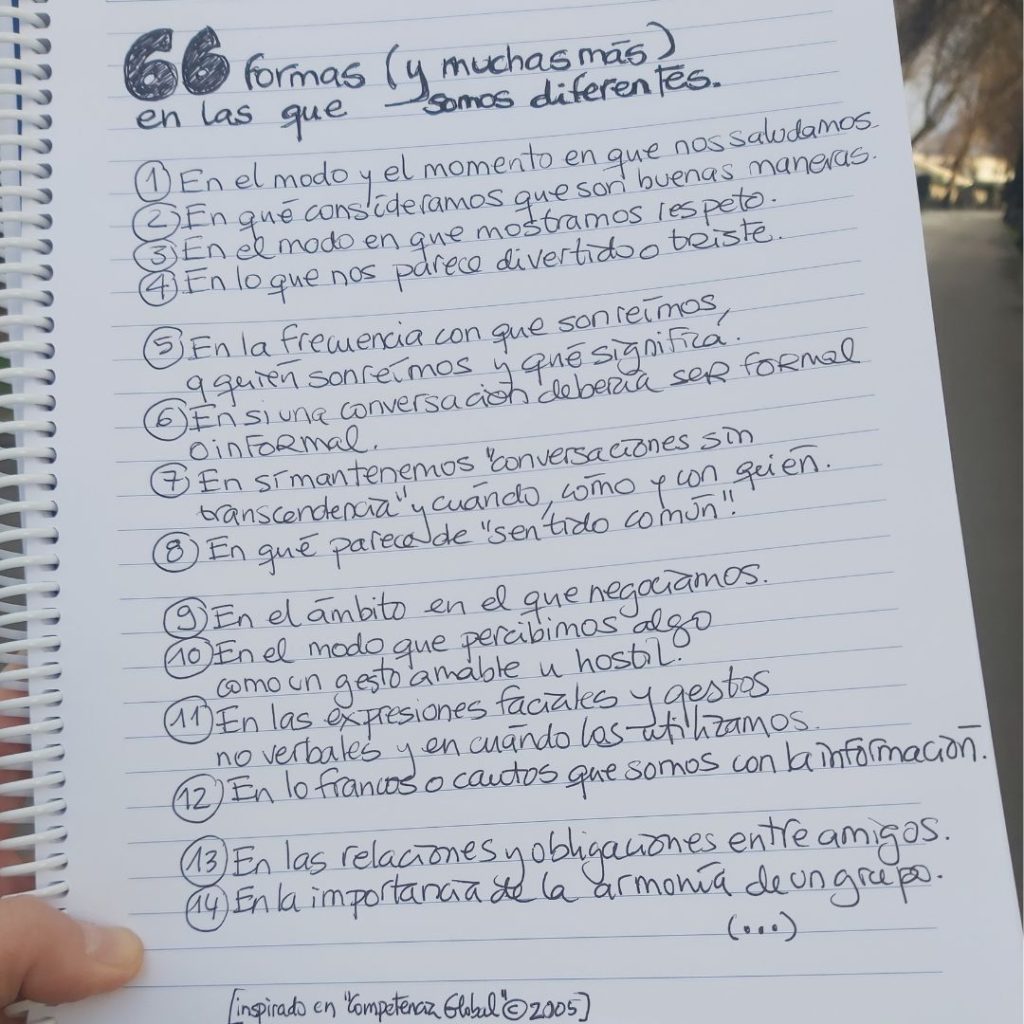 66 formas (y muchas más)
en las que somos diferentes.
① En el modo y el momento en que nos saludamos
② En qué consideramos que son buenas maneras.
③ En el modo en que mostramos respeto.
④ En lo que nos parece divertido o triste.
⑤ En la frecuencia con que sonreímos,
a quién sonreímos y qué significa.
⑥ En si una conversación debería ser formal
o informal.
⑦ En sí mantenemos "conversaciones sin
transcendencia" y cuándo, cómo y con quién.
⑧ En qué parece de "sentido común".
⑨ En el ámbito en el que negociamos.
⑩ En el modo que percibimos algo
como un gesto amable u hostil.
⑪ En las expresiones faciales y gestos
no verbales y en cuándo los utilizamos.
⑫ En lo francos o cautos que somos con la información.
⑬ En las relaciones y obligaciones entre amigos.
⑭ En la importancia de la armonía de un grupo.
(...)
[inspirado en "Competencia Global" © 2005]